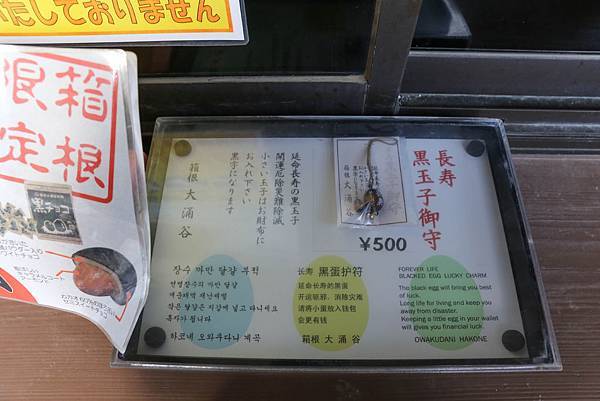 たしておりません
箱根
限定
黒チョコ
長寿
黒玉子御守
¥500
延命長寿の黒玉子
開運厄除災難除滅
小さい玉子はお財布に
お入れ下さい
黒字になります
箱根 大涌谷
箱根 大涌谷
장수 까만 달걀 부적
연명장수의 까만 달걀
작은 달걀은 지갑에 넣고 다니세요
흑자가 됩니다
하코네 오와쿠다니 계곡
长寿 黑蛋护符
延命长寿的黑蛋
开运驱邪、消除灾难
请将小蛋放入钱包
会更有钱
箱根 大涌谷
FOREVER LIFE
BLACKED EGG LUCKY CHARM
The black egg will bring you best
of luck.
Long life for living and keep you
away from disaster.
Keeping a little egg in your wallet
will gives you financial luck.
OWAKUDANI HAKONE